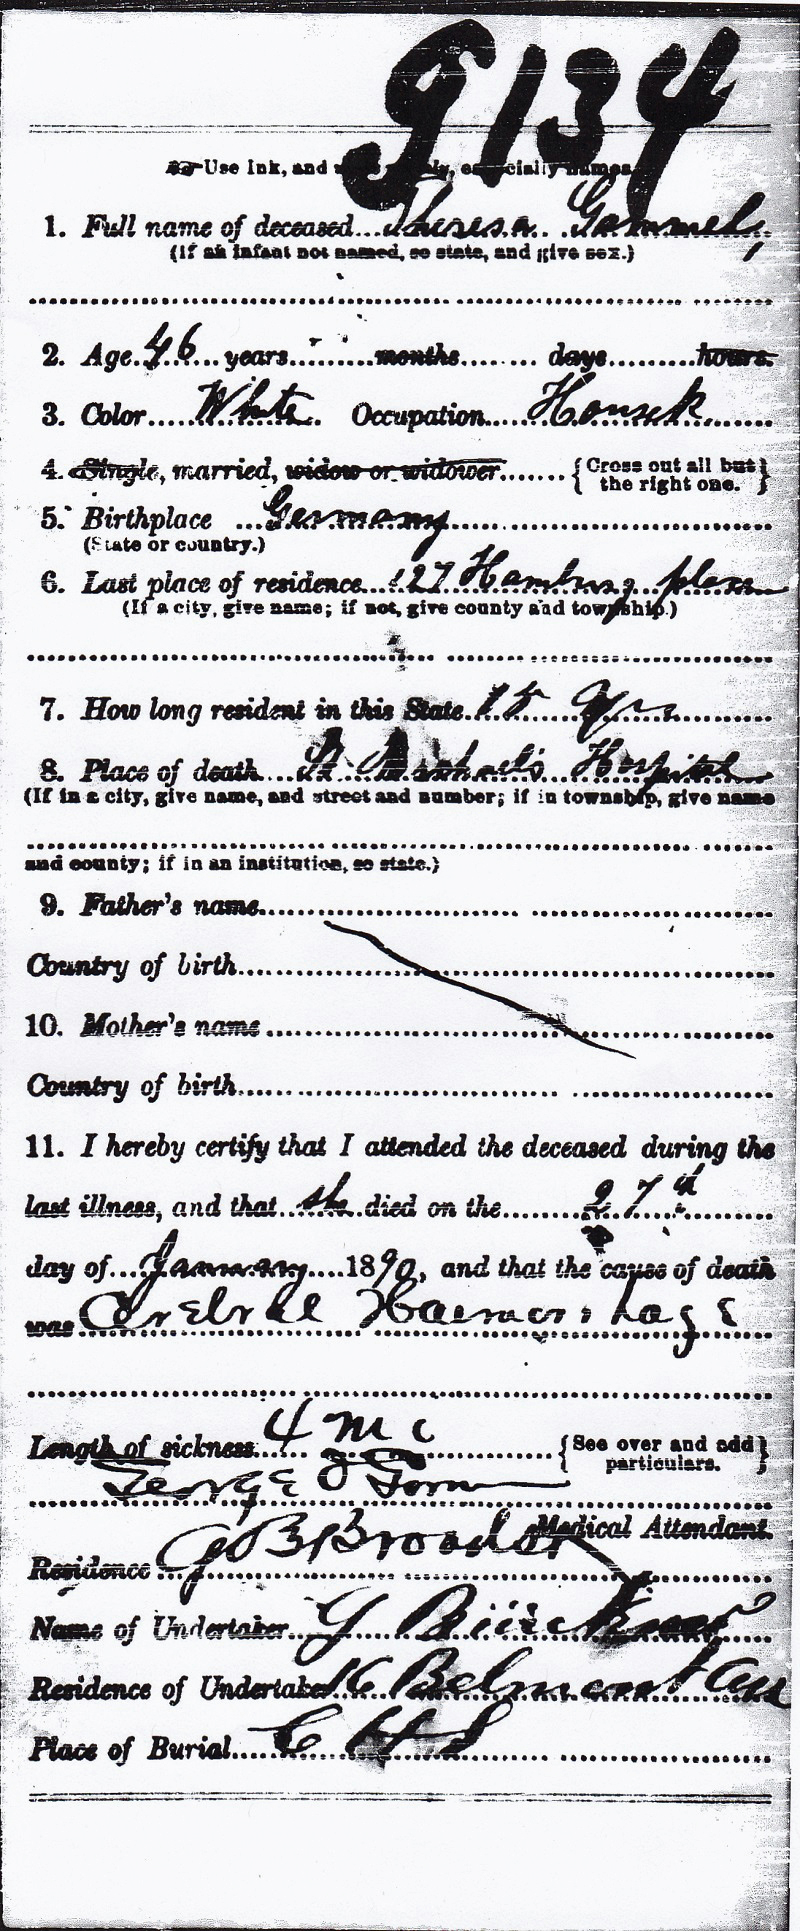 G134
Use Ink, and
1. Full name of deceased Theresa Gammel,
(If an infant not named, so state, and give sex.)
2. Age 46 years months days hours.
3. Color White Occupation Housek
4. Single, married, widow or widower {Cross out all but the right one.}
5. Birthplace Germany
(State or country.)
6. Last place of residence 127 Hamburg place
(If a city, give name; if not, give county and township.)
7. How long resident in this State 15 yrs
8. Place of death St Michael's Hospital
(If in a city, give name, and street and number; if in township, give name
and county; if in an institution, so state.)
9. Father's name
Country of birth
10. Mother's name
Country of birth
11. I hereby certify that I attended the deceased during the
last illness, and that she died on the 27th
day of January 1890, and that the cause of death
was Cerebral Haemorrhage
Length of sickness 4 {See over and add particulars.}
George
Medical Attendant.
Residence Broad St
Name of Undertaker G
Residence of Undertaker 16 Belmont Ave
Place of Burial C H S